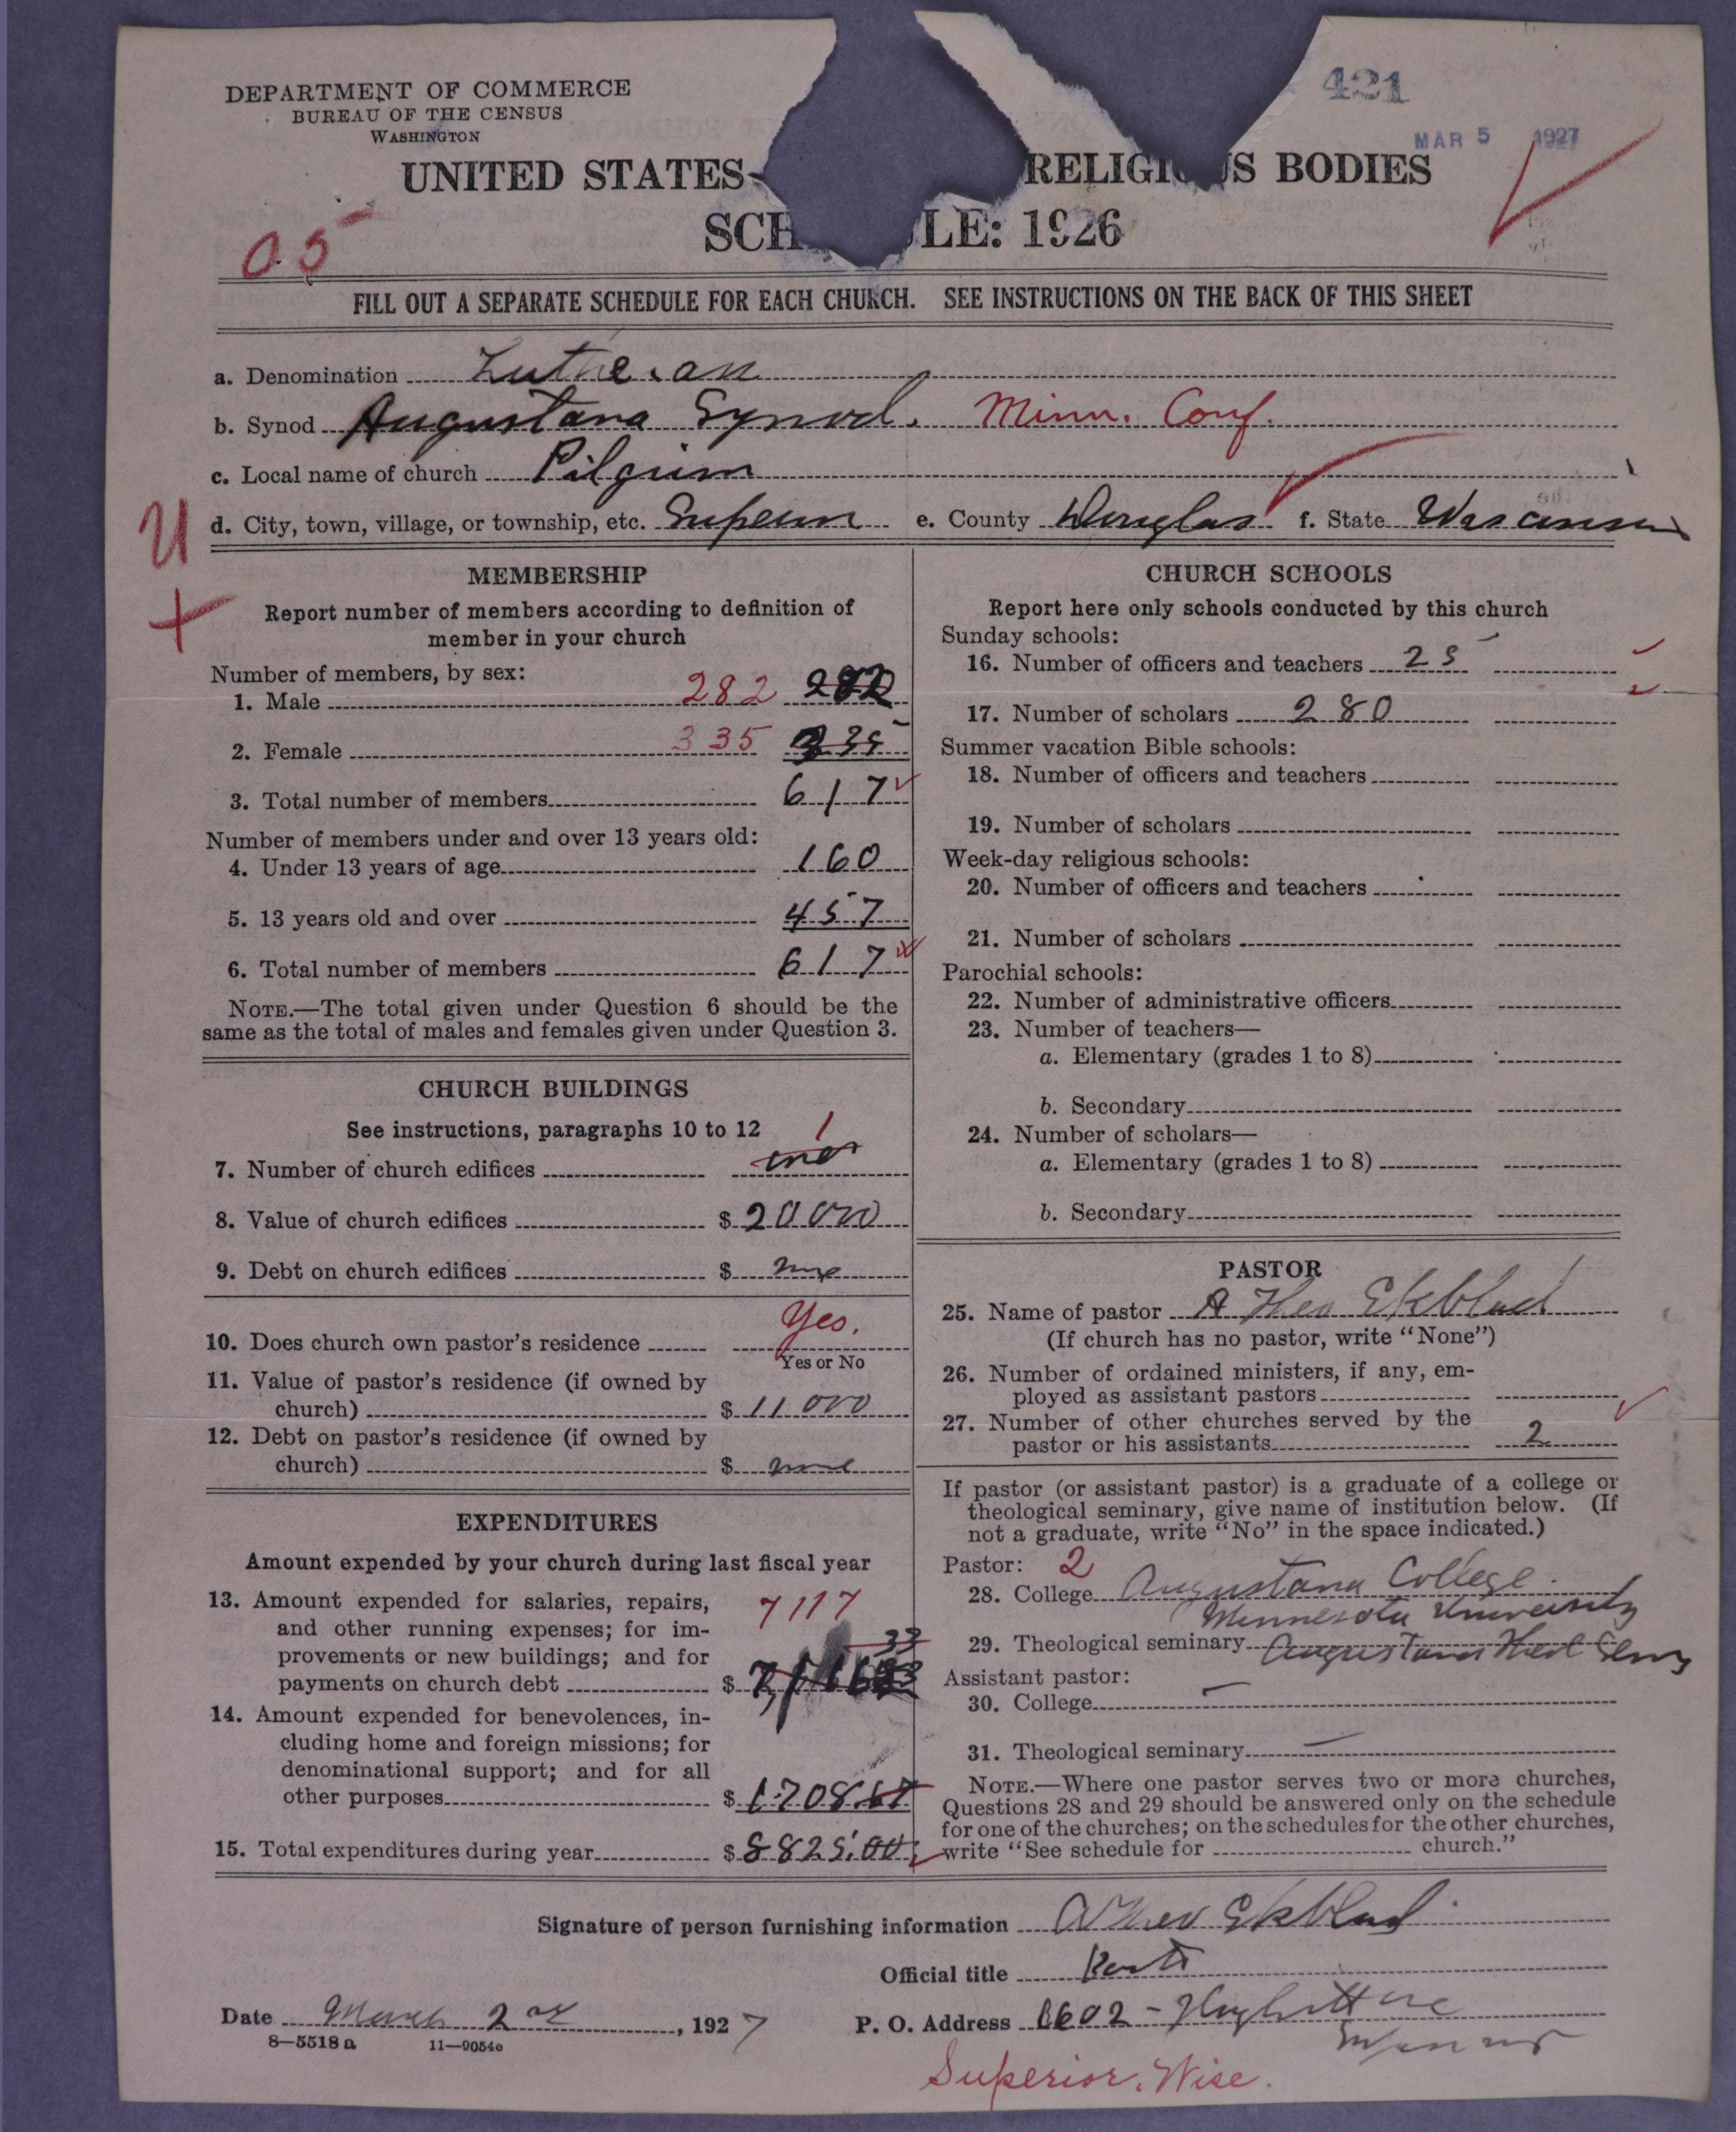 DEPARTMENT OF COMMERCE
BUREAU OF THE CENSUS
WASHINGTON
421
MAR 5 1927
UNITED STATES RELIGIOUS BODIES
SCH LE: 1926
05
FILL OUT A SEPARATE SCHEDULE FOR EACH CHURCH. SEE INSTRUCTIONS ON THE BACK OF THIS SHEET
a. Denomination Lutheran
b. Synod Augustana Synod. Minn. Conf.
c. Local name of church Pilgrim
d. City, town, village, or township, etc. Superior e. County Douglas f. State Wisconsin
U
+
MEMBERSHIP
Report number of members according to definition of
member in your church
Number of members, by sex:
1. Male 282 282
2. Female 335 335
3. Total number of members 617
Number of members under and over 13 years old:
4. Under 13 years of age 160
5. 13 years old and over 457
6. Total number of members 617
NOTE.—The total given under Question 6 should be the
same as the total of males and females given under Question 3.
CHURCH BUILDINGS
See instructions, paragraphs 10 to 12
1
7. Number of church edifices one
8. Value of church edifices $ 20000
9. Debt on church edifices $ none
10. Does church own pastor's residence Yes.
Yes or No
11. Value of pastor's residence (if owned by
church) $ 11000
12. Debt on pastor's residence (if owned by
church) $ none
EXPENDITURES
Amount expended by your church during last fiscal year
13. Amount expended for salaries, repairs, 7117
and other running expenses; for im-
provements or new buildings; and for 33
payments on church debt $
14. Amount expended for benevolences, in-
cluding home and foreign missions; for
denominational support; and for all
other purposes $ 1708.67
15. Total expenditures during year $ 8825.00
CHURCH SCHOOLS
Report here only schools conducted by this church
Sunday schools:
16. Number of officers and teachers 25
17. Number of scholars 280
Summer vacation Bible schools:
18. Number of officers and teachers
19. Number of scholars
Week-day religious schools:
20. Number of officers and teachers
21. Number of scholars
Parochial schools:
22. Number of administrative officers
23. Number of teachers—
a. Elementary (grades 1 to 8)
b. Secondary
24. Number of scholars—
a. Elementary (grades 1 to 8)
b. Secondary
PASTOR
25. Name of pastor A Theo Ekblad
(If church has no pastor, write "None")
26. Number of ordained ministers, if any, em-
ployed as assistant pastors
27. Number of other churches served by the
pastor or his assistants 2
If pastor (or assistant pastor) is a graduate of a college or
theological seminary, give name of institution below. (If
not a graduate, write "No" in the space indicated.)
Pastor: 2
28. College Augustana College.
Minnesota University
29. Theological seminary Augustana Theol Semy
Assistant pastor:
30. College —
31. Theological seminary —
NOTE.—Where one pastor serves two or more churches,
Questions 28 and 29 should be answered only on the schedule
for one of the churches; on the schedules for the other churches,
write "See schedule for church."
Signature of person furnishing information A Theo Ekblad
Official title
Date March 2nd, 1927 P. O. Address 1602 - Hughitt ave
Superior
8—5518 a 11—9054
Superior, Wisc.